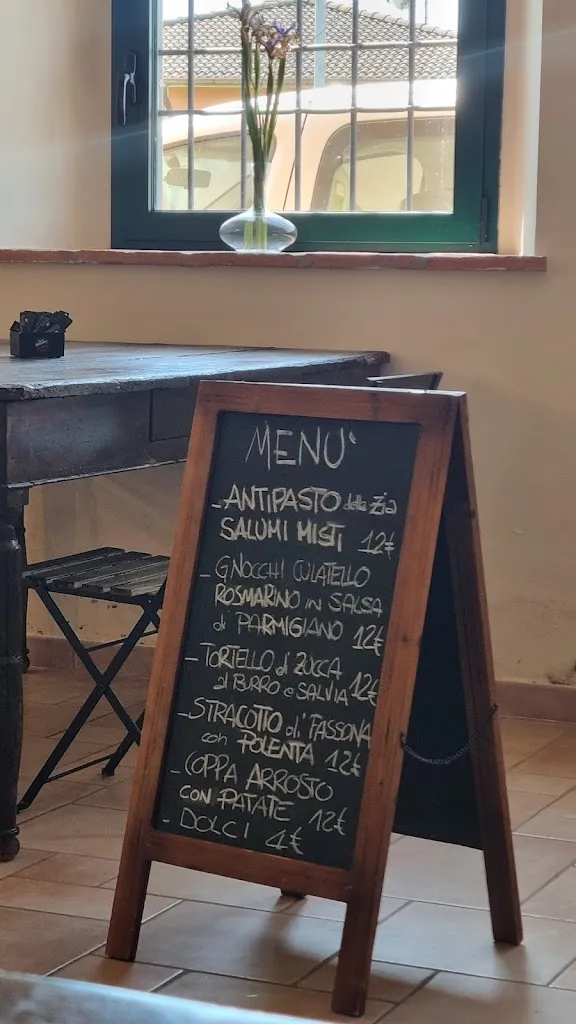 MENU'
- ANTIPASTO della Zia
SALUMI MISTI 12€
- GNOCCHI CULATELLO
ROSMARINO in SALSA
di PARMIGIANO 12€
- TORTELLO di ZUCCA
al BURRO e SALVIA 12€
- STRACOTTO di FASSONA
con POLENTA 12€
- COPPA ARROSTO
CON PATATE 12€
- DOLCI 4€